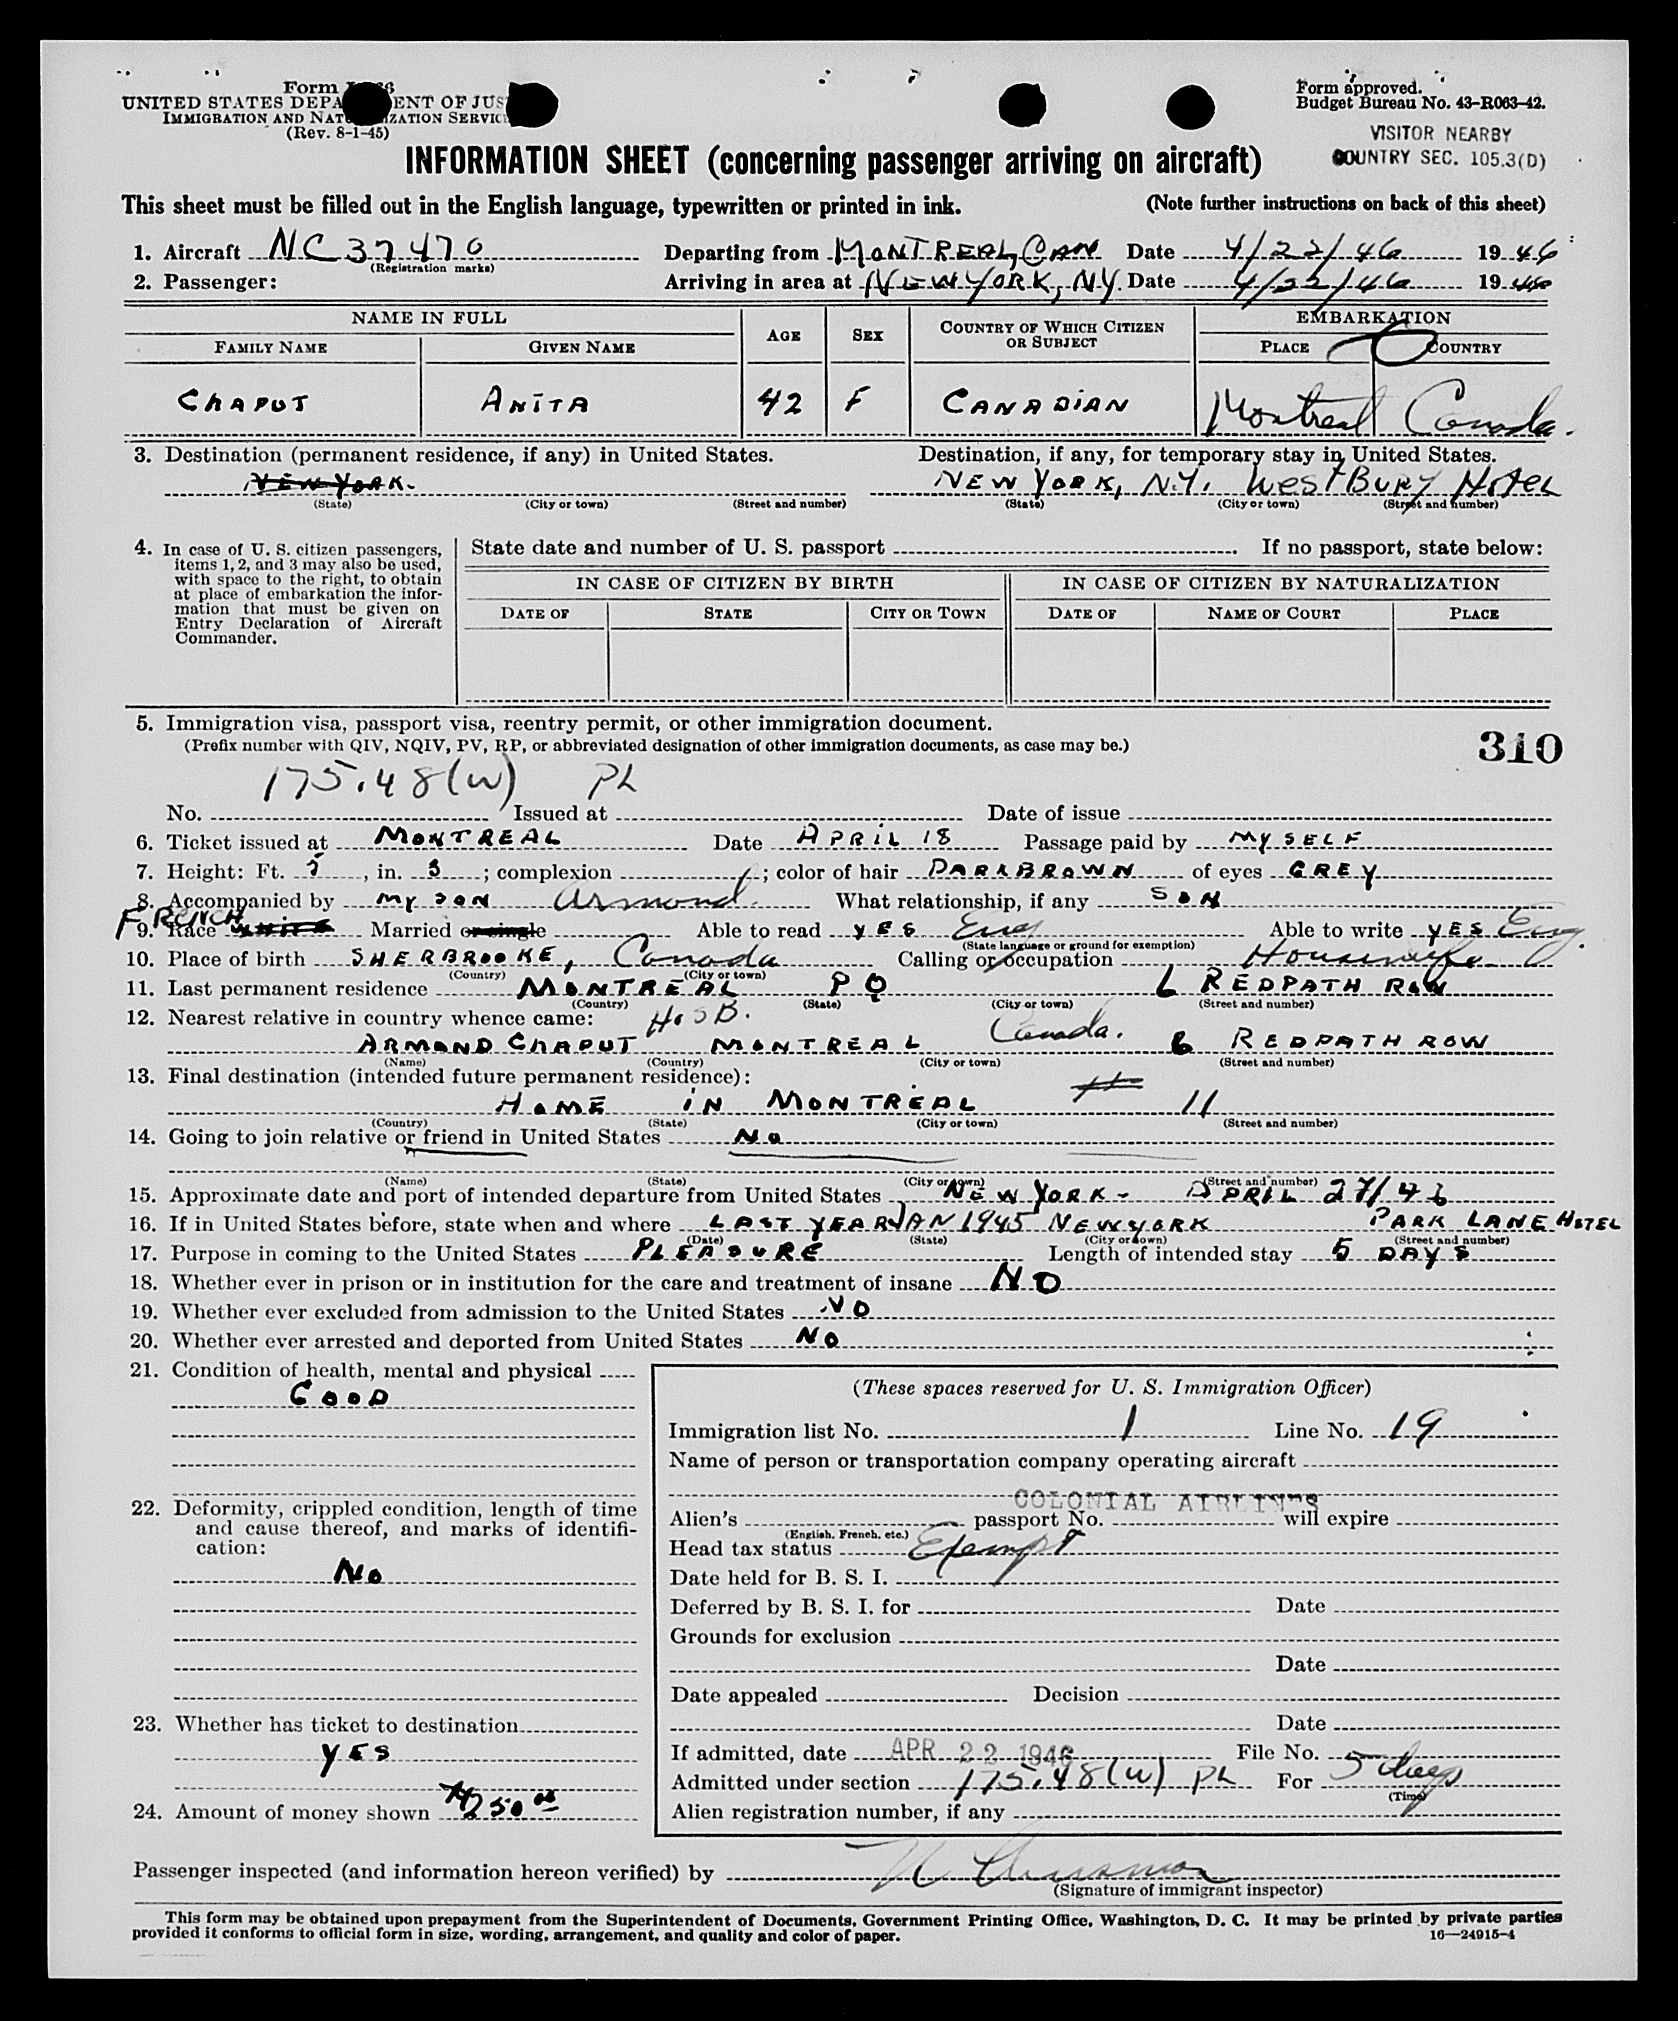 Form
UNITED STATES DEPA ENT OF JUS
IMMIGRATION AND NAT IZATION SERVIC
(Rev. 8-1-45)
Form approved.
Budget Bureau No. 43-R063-42.
VISITOR NEARBY
COUNTRY SEC. 105.3(D)
INFORMATION SHEET (concerning passenger arriving on aircraft)
This sheet must be filled out in the English language, typewritten or printed in ink. (Note further instructions on back of this sheet)
1. Aircraft NC 37470 Departing from MONTREAL, CAN Date 4/22/46 19 46
(Registration marks)
2. Passenger: Arriving in area at NEW YORK, NY. Date 4/22/46 19 46
NAME IN FULL AGE SEX COUNTRY OF WHICH CITIZEN OR SUBJECT EMBARKATION
FAMILY NAME GIVEN NAME PLACE COUNTRY
CHAPUT ANITA 42 F CANADIAN Montreal Canada.
3. Destination (permanent residence, if any) in United States. Destination, if any, for temporary stay in United States.
NEW YORK. NEW YORK, N.Y. WESTBURY HOTEL
(State) (City or town) (Street and number) (State) (City or town) (Street and number)
4. In case of U. S. citizen passengers, items 1, 2, and 3 may also be used, with space to the right, to obtain at place of embarkation the information that must be given on Entry Declaration of Aircraft Commander.
State date and number of U. S. passport . If no passport, state below:
IN CASE OF CITIZEN BY BIRTH IN CASE OF CITIZEN BY NATURALIZATION
DATE OF STATE CITY OR TOWN DATE OF NAME OF COURT PLACE
5. Immigration visa, passport visa, reentry permit, or other immigration document.
(Prefix number with QIV, NQIV, PV, RP, or abbreviated designation of other immigration documents, as case may be.)
310
175.48(W) PL
No. Issued at Date of issue
6. Ticket issued at MONTREAL Date APRIL 18 Passage paid by MYSELF
7. Height: Ft. 5, in. 3; complexion ; color of hair DARKBROWN of eyes GREY
8. Accompanied by MY SON Armond. What relationship, if any SON
FRENCH
9. Race WHITE Married or single Able to read YES Eng Able to write YES Eng.
(State language or ground for exemption)
10. Place of birth SHERBROOKE, Canada Calling or occupation Housewife
(Country) (City or town)
11. Last permanent residence MONTREAL PQ 6 REDPATH ROW
(Country) (State) (City or town) (Street and number)
12. Nearest relative in country whence came: HUSB. Canada.
ARMOND CHAPUT MONTREAL 6 REDPATH ROW
(Name) (Country) (City or town) (Street and number)
13. Final destination (intended future permanent residence):
HOME IN MONTREAL # 11
(Country) (State) (City or town) (Street and number)
14. Going to join relative or friend in United States No
(Name) (State) (City or town) (Street and number)
15. Approximate date and port of intended departure from United States NEW YORK - APRIL 27/46
16. If in United States before, state when and where LAST YEAR JAN 1945 NEW YORK PARK LANE HOTEL
(Date) (State) (City or town) (Street and number)
17. Purpose in coming to the United States PLEASURE Length of intended stay 5 DAYS
18. Whether ever in prison or in institution for the care and treatment of insane NO
19. Whether ever excluded from admission to the United States NO
20. Whether ever arrested and deported from United States NO
21. Condition of health, mental and physical
GOOD
22. Deformity, crippled condition, length of time and cause thereof, and marks of identification:
No
23. Whether has ticket to destination
YES
24. Amount of money shown $250 00
(These spaces reserved for U. S. Immigration Officer)
Immigration list No. 1 Line No. 19
Name of person or transportation company operating aircraft
COLONIAL AIRLINES
Alien's passport No. will expire
(English, French, etc.)
Head tax status Exempt
Date held for B. S. I.
Deferred by B. S. I. for Date
Grounds for exclusion
Date
Date appealed Decision
Date
If admitted, date APR 22 1946 File No.
Admitted under section 175.48(W) PL For 5 days
(Time)
Alien registration number, if any
Passenger inspected (and information hereon verified) by
(Signature of immigrant inspector)
This form may be obtained upon prepayment from the Superintendent of Documents, Government Printing Office, Washington, D. C. It may be printed by private parties
provided it conforms to official form in size, wording, arrangement, and quality and color of paper. 16—24915-4